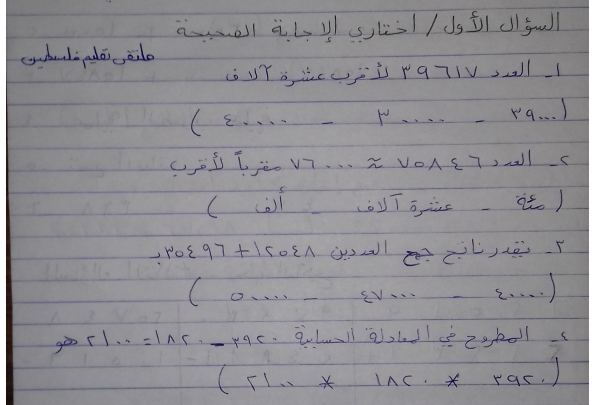 السؤال الأول / اختاري الإجابة الصحيحة
ملتقى تعليم فلسطين
١- العدد ٣٩٦١٧ لأقرب عشرة آلاف
(٣٩٠٠٠ - ٣٠٠٠٠ - ٤٠٠٠٠)
٢- العدد ٧٥٨٤٦ ≈ ٧٦٠٠٠ مقرباً لأقرب
(مئة - عشرة آلاف - ألف)
٣- تقدر ناتج جمع العددين ١٢٥٤٨ + ٣٥٤٩٦ بـ
(٤٠٠٠٠ - ٤٧٠٠٠ - ٥٠٠٠٠)
٤- المطروح في المعادلة الحسابية ٣٩٢٠ - ١٨٢٠ = ٢١٠٠ هو
(٣٩٢٠ * ١٨٢٠ * ٢١٠٠)